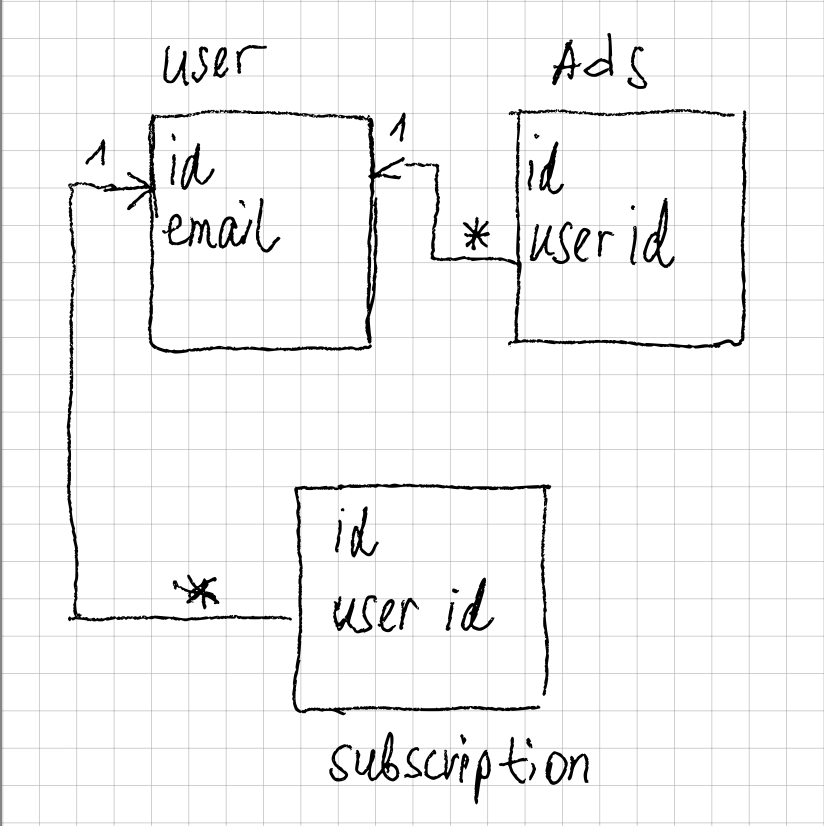 user
Ads
1
1
id
email
id
user id
*
*
id
user id
subscription